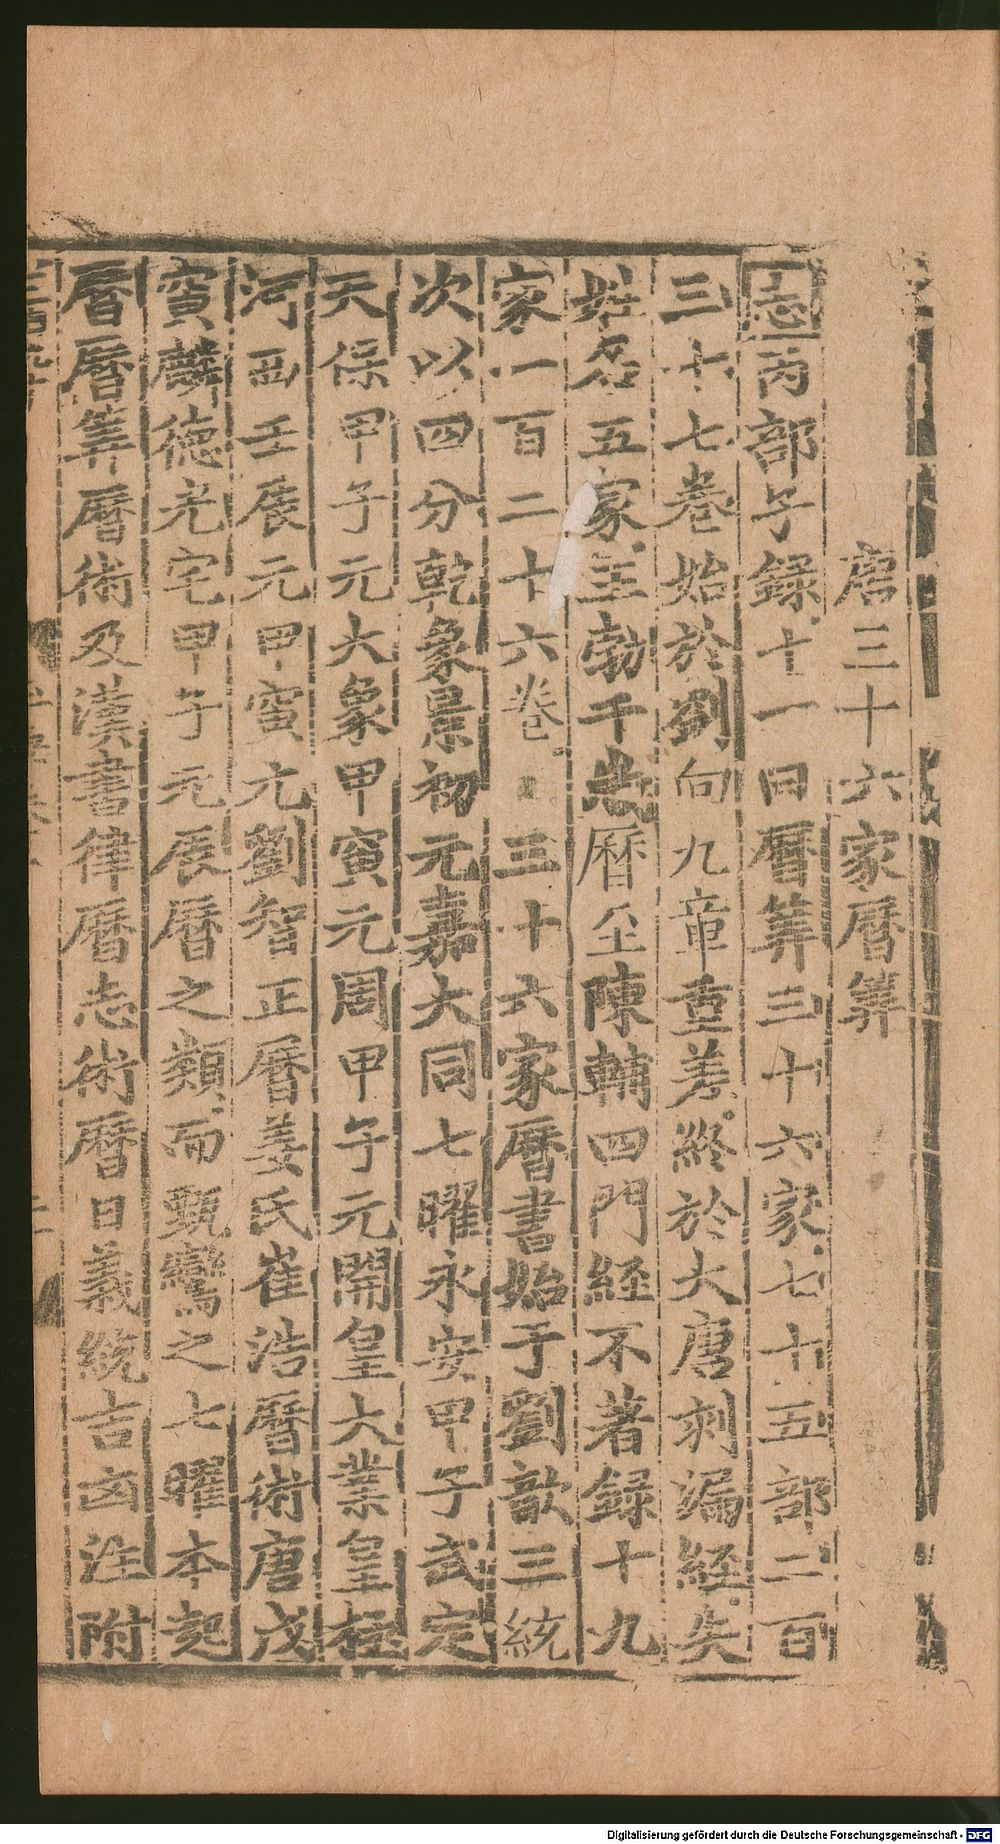 唐三十六家曆筭
志丙部子録十一曰曆筭三十六家七十五部二百
三十七卷始於劉向九章重差終於大唐刻漏經失
姓名五家王勃千歲曆至陳輔四門経不著録十九
家一百二十六卷三十六家曆書始于劉歆三統
次以四分乾象景初元嘉大同七曜永安甲子武定
天保甲子元大象甲寅元周甲午元開皇大業皇極
河西壬辰元甲寅元劉智正曆姜氏崔浩曆術唐戊
寅麟德光宅甲子元辰曆之類而甄鸞之七曜本起
曆曆筭曆術及漢書律曆志術曆日義統吉凶注附
Digitalisierung gefördert durch die Deutsche Forschungsgemeinschaft - DFG